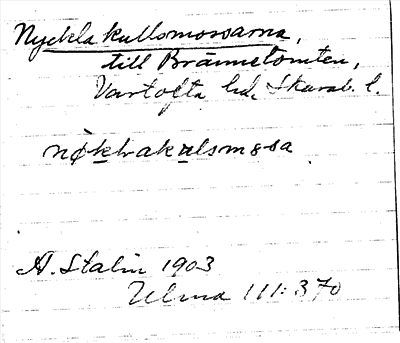 Nyckla kullsmossarna,
till Brännetomten,
Vartofta hd, Skarab. l.
nø̀klvakulsmosa
A. Stalin 1903
Ulma 111: 370